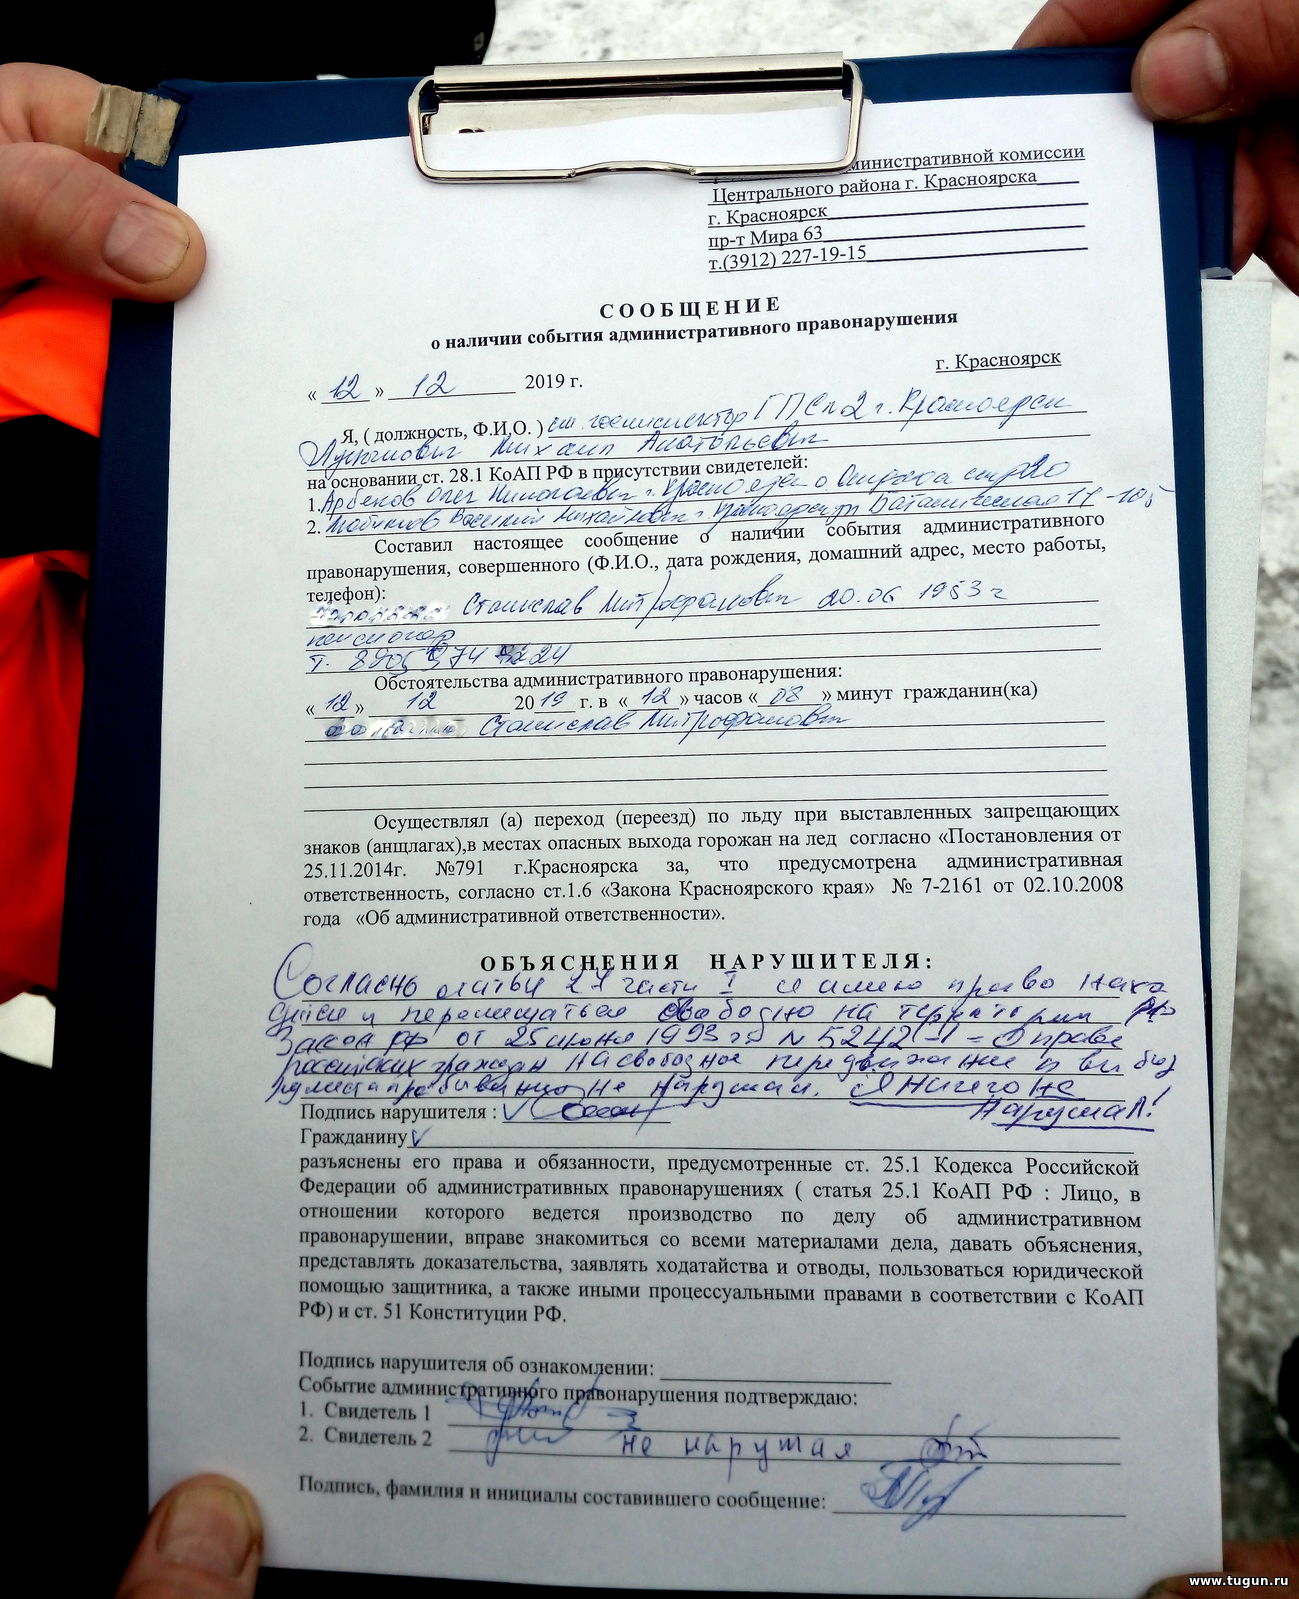 министративной комиссии
Центрального района г. Красноярска
г. Красноярск
пр-т Мира 63
т.(3912) 227-19-15
СООБЩЕНИЕ
о наличии события административного правонарушения
г. Красноярск
« 12 » 12 2019 г.
Я, ( должность, Ф.И.О. ) ст. госинспектор ГПС №2 г. Красноярск
Михаил Анатольевич
на основании ст. 28.1 КоАП РФ в присутствии свидетелей:
1. Арбеков Олег Николаевич г. Красноярск о Отдыха
2. Василий Михайлович г. Красноярск ул Ботаническая 17-105
Составил настоящее сообщение о наличии события административного
правонарушения, совершенного (Ф.И.О., дата рождения, домашний адрес, место работы,
телефон):
Станислав Митрофанович 20.06 1953 г
пенсионер
т.
Обстоятельства административного правонарушения:
« 12 » 12 2019 г. в « 12 » часов « 08 » минут гражданин(ка)
Станислав Митрофанович
Осуществлял (а) переход (переезд) по льду при выставленных запрещающих
знаков (анщлагах),в местах опасных выхода горожан на лед согласно «Постановления от
25.11.2014г. №791 г.Красноярска за, что предусмотрена административная
ответственность, согласно ст.1.6 «Закона Красноярского края» № 7-2161 от 02.10.2008
года «Об административной ответственности».
ОБЪЯСНЕНИЯ НАРУШИТЕЛЯ:
Согласно статьи 27 части I я имею право нахо
дится и перемещаться свободно на территории РФ
Закон РФ от 25 июня 1993 г N 5242-1 = О праве
российских граждан на свободное передвижение и выбор
места пребывания не нарушал. Я Ничего не
Нарушал!
Подпись нарушителя :
Гражданину
разъяснены его права и обязанности, предусмотренные ст. 25.1 Кодекса Российской
Федерации об административных правонарушениях ( статья 25.1 КоАП РФ : Лицо, в
отношении которого ведется производство по делу об административном
правонарушении, вправе знакомиться со всеми материалами дела, давать объяснения,
представлять доказательства, заявлять ходатайства и отводы, пользоваться юридической
помощью защитника, а также иными процессуальными правами в соответствии с КоАП
РФ) и ст. 51 Конституции РФ.
Подпись нарушителя об ознакомлении:
Событие административного правонарушения подтверждаю:
1. Свидетель 1
2. Свидетель 2 не нарушая
Подпись, фамилия и инициалы составившего сообщение:
www.tugun.ru